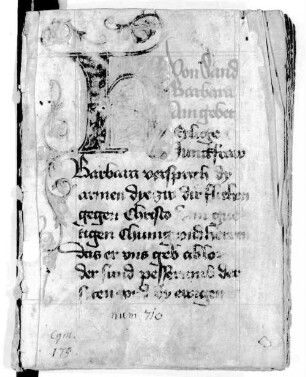 Von sand
Barbara
ain gebet
H
eilige
Junckfraw
Barbara versprich dy
armen dye zu dir fliehen
gegen Christo
tigen Chunig vnd herren
das er vns geb ablos
der sund pesserund der
ewigen
num. 76
Cgm.
175.